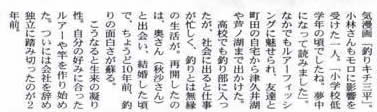 気漫画『釣りキチ三平』。
小林さんもモロに影響を
受けた一人。「小学校低
学年の頃でしたね。夢中
になって読みました」。
なかでもルアーフィッシ
ングに魅せられ、友達と
町田の自宅から津久井湖
や芦ノ湖まで出かけた。
高校でも釣り部に入っ
たが、社会に出ると仕事
が忙しく、釣りとは無縁
の生活が。再開したの
は、奥さん(秋沙さん)
と出会い、結婚した頃
で、ちょうど10年前。釣
りの面白さが蘇る。
こうなると生来の凝り
性。自分の好みに合った
ルアーや竿を作り始め
た。ついには会社を辞め
独立に踏み切ったのが2